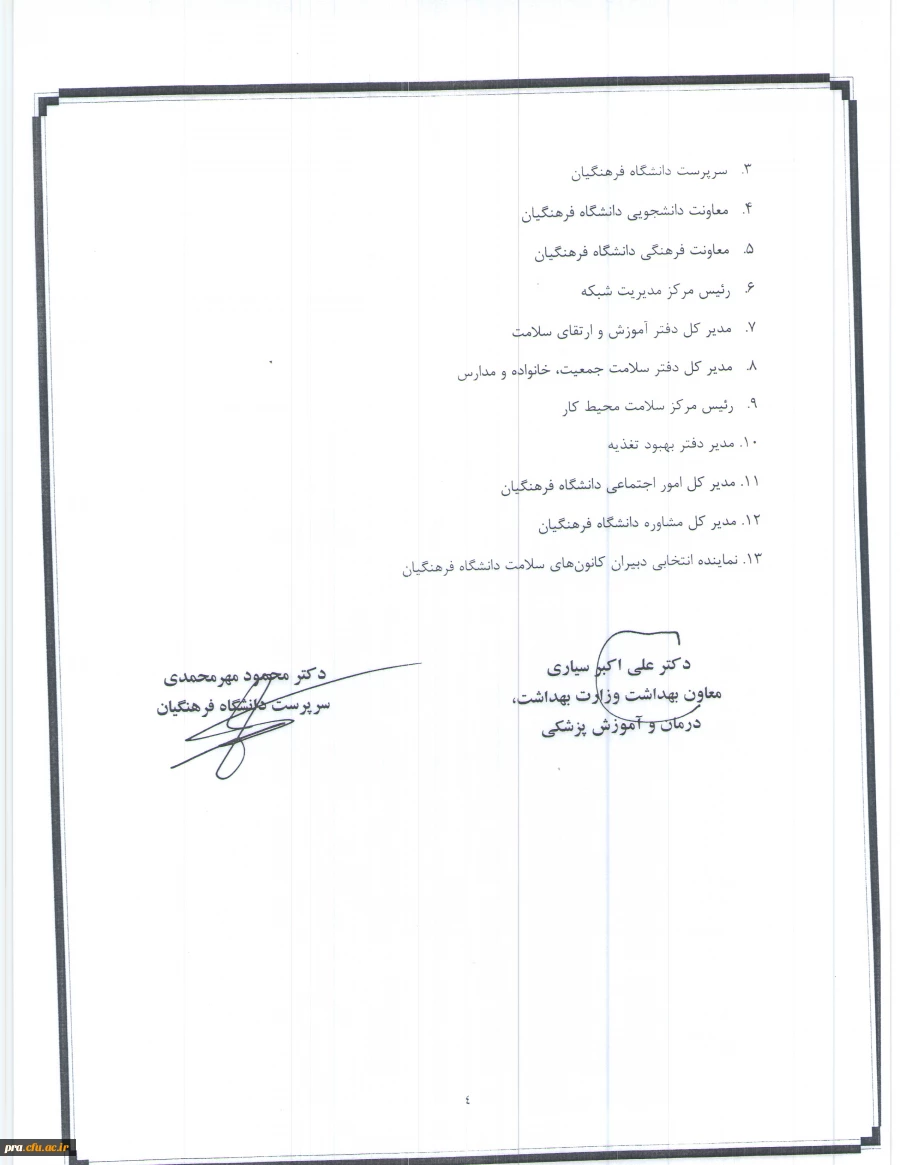 ۳. سرپرست دانشگاه فرهنگیان
۴. معاونت دانشجویی دانشگاه فرهنگیان
۵. معاونت فرهنگی دانشگاه فرهنگیان
۶. رئیس مرکز مدیریت شبکه
۷. مدیر کل دفتر آموزش و ارتقای سلامت
۸. مدیر کل دفتر سلامت جمعیت، خانواده و مدارس
۹. رئیس مرکز سلامت محیط کار
۱۰. مدیر دفتر بهبود تغذیه
۱۱. مدیر کل امور اجتماعی دانشگاه فرهنگیان
۱۲. مدیر کل مشاوره دانشگاه فرهنگیان
۱۳. نماینده انتخابی دبیران کانون‌های سلامت دانشگاه فرهنگیان
دکتر علی اکبر سیاری
معاون بهداشت وزارت بهداشت،
درمان و آموزش پزشکی
دکتر محمود مهرمحمدی
سرپرست دانشگاه فرهنگیان
٤
pra.cfu.ac.ir